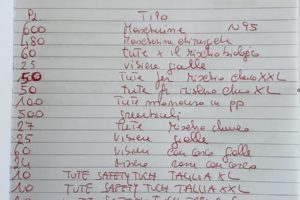 Pz. TIPO
600 Mascherine N95
480 Mascherine chirurgiche
60 tute x il rischio biologico
25 visiere gialle
50 Tute per rischio chimico XXL
50 tute per rischio chimico XL
100 Tute monouso in pp
500
27 Tute rischio chimico
25 visiere gialle
60 visiere con casco gialle
24 con casco
10 TUTE SAFETY TUCH TAGLIA XL
10 TUTE SAFETY TUCH TALLIA XXL
10 TUTE SAFETY TUCH XL